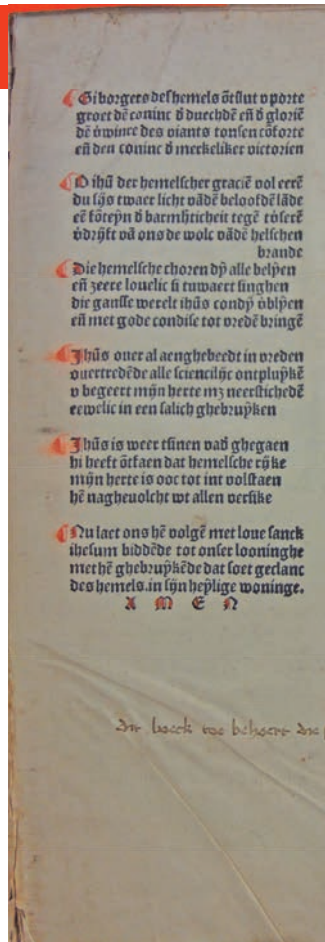 Gi borgers des hemels õtslut v porte
groet dẽ coninc d̕ duechdẽ eñ d̕ gloriẽ
dẽ v̕wince des viants tonsen cõforte
eñ den coninc d̕ merkeliker victorien
O ihũ der hemelscher graciẽ vol eerẽ
du sÿs twaer licht vãdẽ beloofdẽ lãde
eẽ fõteyn d̕ barmh̕ticheit tegẽ
v̕drÿft vã ons de wolc vãdẽ helschen
brande
Die hemelsche choren dÿ alle belÿen
eñ zeere louelic si tuwaert singhen
die gansse werelt ihũs condÿ v̕blÿen
eñ met gode condise tot vredẽ bringẽ
Jhũs ouer al aenghebeedt in vreden
ouertredẽde alle sciencilijc ontpluÿkẽ
v begeert mÿn herte mʒ neerstichedẽ
eewelic in een salich ghebruÿken
Jhũs is weer tsinen vad̕ ghegaen
hi heeft õtfaen dat hemelsche rÿke
mÿn herte is ooc tot int volstaen
hẽ naghevolcht wt allen versike
Nu laet ons hẽ volgẽ met loue sanck
ihesum biddẽde tot onser looninghe
met hẽ ghebruÿkẽde dat soet geclanc
des hemels.in sÿn heÿlige woninge.
A M E N
dit boeck toe behoert die